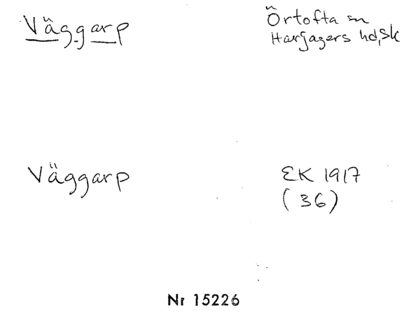 Väggarp
Örtofta sn
Harjagers hd, Sk
Väggarp
EK 1917
(36)
Nr 15226